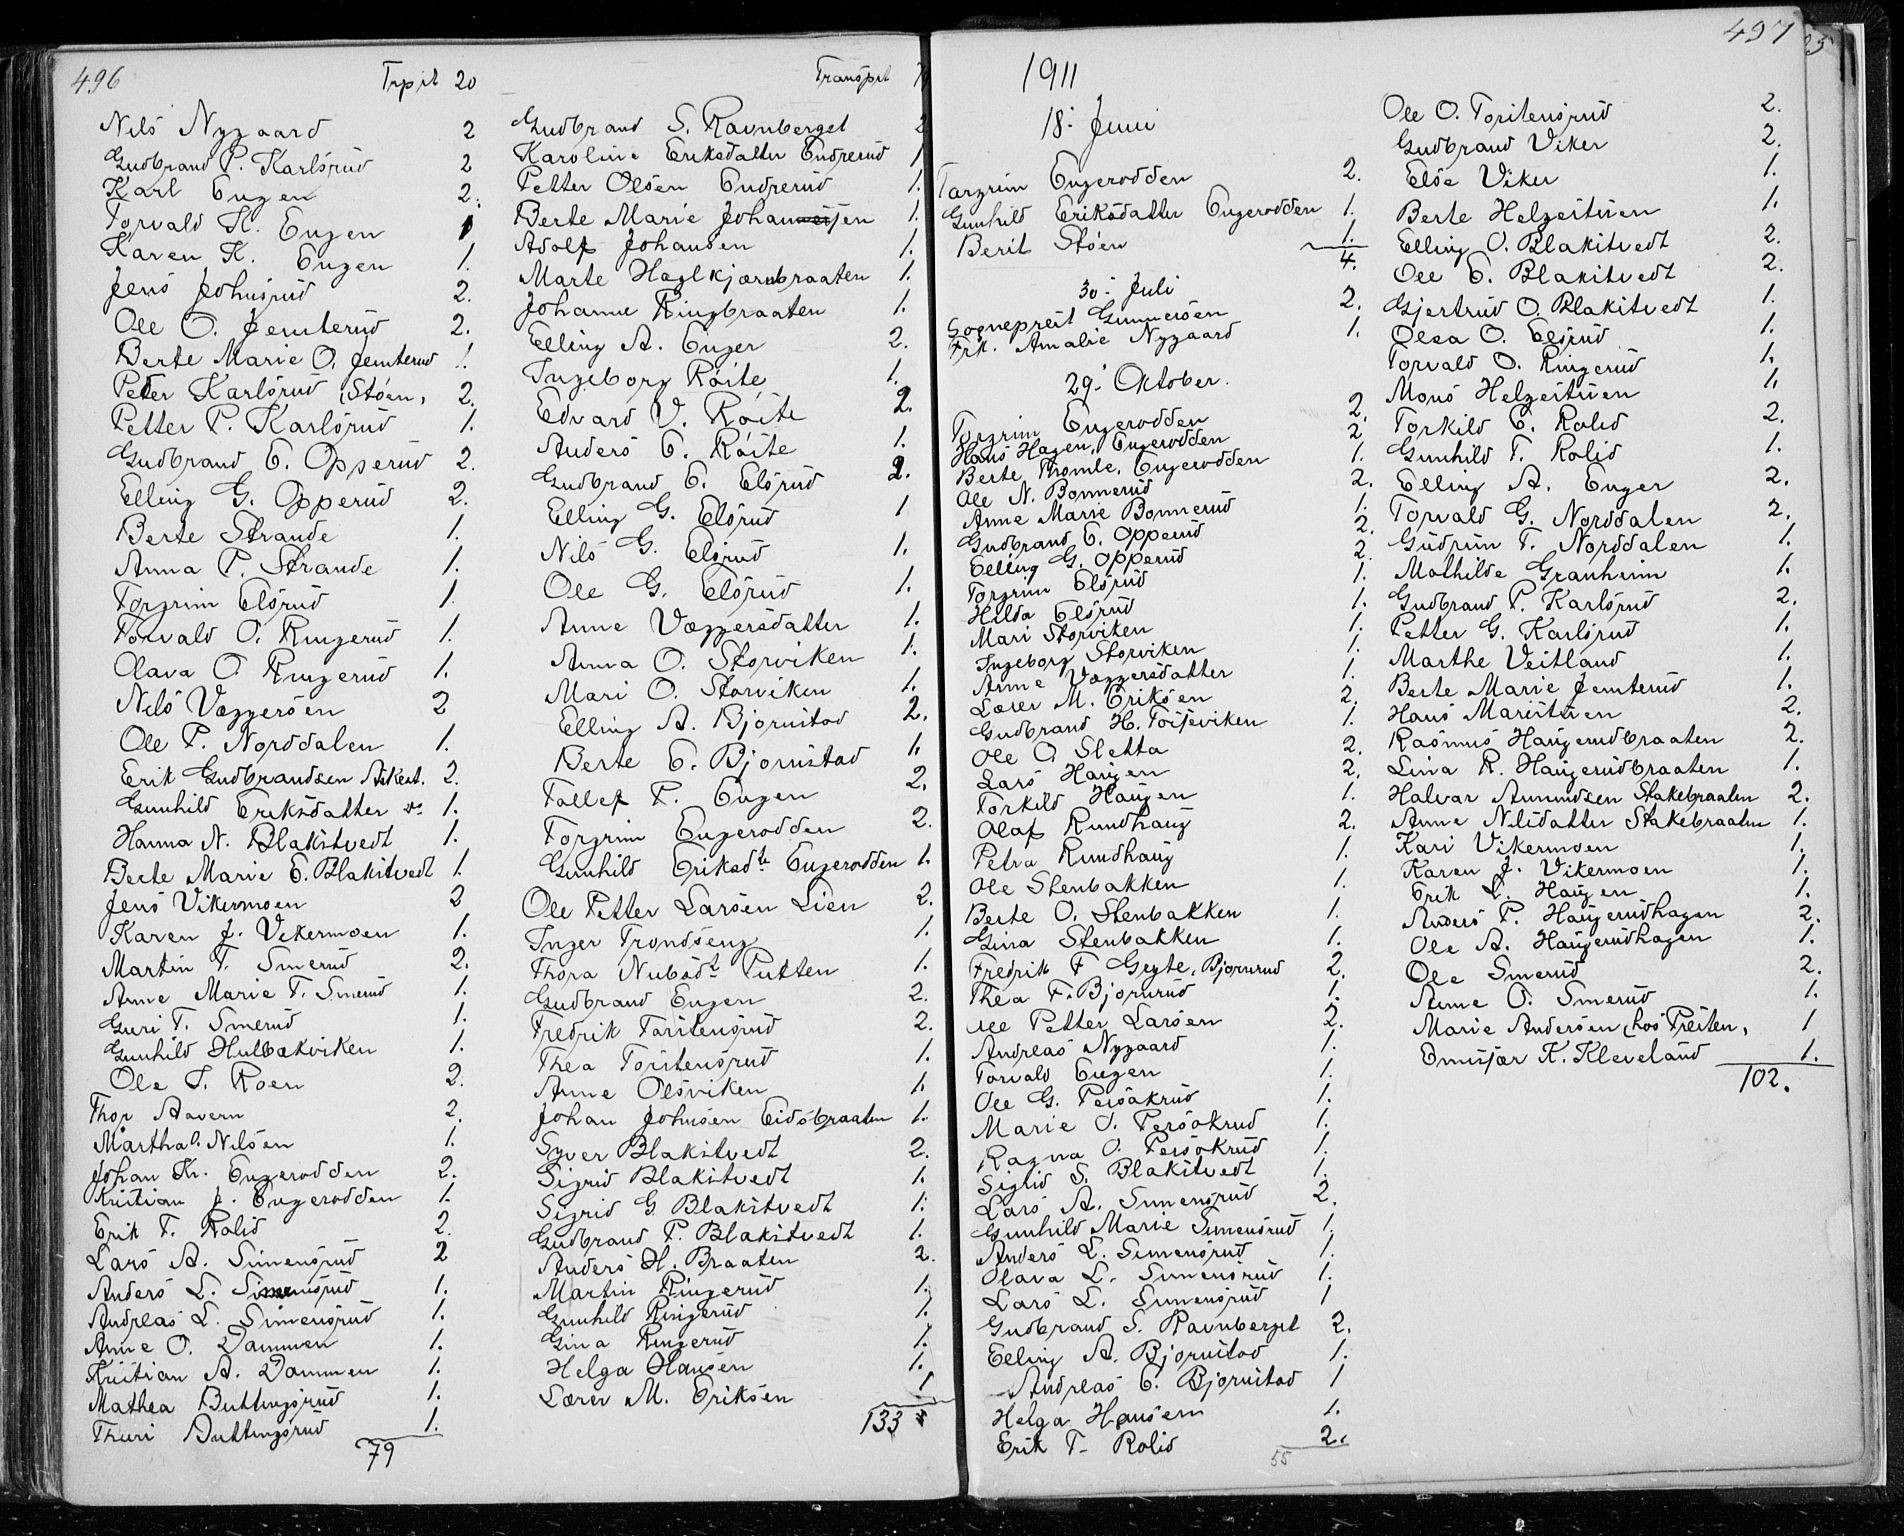 496 Trpst 20
Nils Nygaard 2
Gudbrand P. Karlsrud 2
Karl Engen 2.
Torvald K. Engen 1
Karen K. Engen 1.
Jens Johnsrud 2.
Ole O. Jemterud 2.
Berte Marie O. Jemterud 1.
Peter Karlsrud (Støen, 2.
Petter P. Karlsrud 1.
Gudbrand E. Opperud 2.
Elling G. Opperud 2.
Berte Strande 1.
Anna P. Strande 1.
Torgrim Elsrud 1
Torvald O. Ringerud 1.
Olava O Ringerud 1.
Nils Væggersen 2
Ole P. Norddalen 1.
Erik Gudbrandsen 2.
Gunhild Eriksdatter do 1.
Hanna N. Blakstvedt 1.
Berte Marie E. Blakstvedt 1.
Jens Vikermoen 2
Karen J. Vikermoen 1.
Martin T. Smerud 2.
Anne Marie T. Smerud 1.
Guri T. Smerud 1.
Gunhild Hulbækviken 1.
Ole J. Roen 2.
Thor Aavern 2.
Martha Nilsen 1.
Johan Kr. Engerodden 2.
Kristian J. Engerodden 1.
Erik T. Rolid 2.
Lars A. Simensrud 2
Anders L. Simensrud 1.
Andreas L. Simensrud 1.
Anne O. Dammen 1.
Kristian A. Dammen 1.
Mathea Buttingsrud 1.
Thuri Buttingsrud 1.
79
Transprt 79
Gudbrand S. Ravnberget 2
Karoline Eriksdatter Endrerud 1
Petter Olsen Endrerud 1.
Berte Marie Johannesen 1.
Adolf Johansen 1.
Marte Haglkjærnbraaten 1.
Johanne Ringbraaten 1.
Elling A. Enger 2.
Ingeborg Røite 1.
Edvard V. Røite 2.
Anders E. Røite 1.
Gudbrand E. Elsrud 2.
Elling G. Elsrud 1
Nils G. Elsrud 1.
Ole G. Elsrud 1.
Anne Væggersdatter 1.
Anna O. Storviken 1.
Mari O. Storviken 1.
Elling A. Bjørnstad 2.
Berte E. Bjørnstad 1.
Tollef T. Engen 2.
Torgrim Engerodden 2.
Gunhild Eriksdtr Engerodden 1.
Ole Petter Larsen Lien 2.
Inger Trondseng 1.
Thora Nubsdtr Putten 1.
Gudbrand Engen 2.
Fredrik Torstensrud 2.
Thea Torstensrud 1.
Anne Olsviken 1.
Johan Johnsen Eidsbraaten 1.
Syver Blakstvedt 2.
Sigrid Blakstvedt 1.
Sigrid G. Blakstvedt 1.
Gudbrand P. Blakstvedt 1.
Anders H. Braaten 2.
Martin Ringerud 1.
Gunhild Ringerud 1.
Gina Ringerud 1.
Helga Hansen 1.
Lærer M. Eriksen 1
133
497
1911
18. Juni
Torgrim Engerodden 2.
Gunhild Eriksdatter Engerodden 1.
Berit Støen 1.
4.
30. Juli
Sogneprest Gunnersen 2.
Frk. Amalie Nygaard 1.
29. Oktober.
Torgrim Engerodden 2.
Hans Hagen, Engerodden 2
Berte Tromle, Engerodden 1.
Ole N. Bonnerud 2.
Anne Marie Bonnerud 1.
Gudbrand E. Opperud 2.
Elling G. Opperud 2.
Torgrim Elsrud 1.
Hilda Elsrud 1.
Mari Storviken 1.
Ingeborg Storviken 1.
Anne Væggersdatter 1.
Lærer M. Eriksen 2.
Gudbrand H. 1.
Ole O. Sletta 2.
Lars Haugen 2.
Torkild Haugen 1.
Olaf Rundhaug 2.
Petra Rundhaug 1.
Ole Stenbakken 1.
Berte O. Stenbakken 1.
Gina Stenbakken 1.
Fredrik F Gryte, Bjørnrud 2.
Thea F. Bjørnrud 1.
Ole Petter Larsen 2.
Andreas Nygaard 1.
Torvald Engen 1.
Ole G. Persøkrud 1.
Marie O. Persøkrud 1.
Ragna O. Persøkrud 1.
Sigrid S. Blakstvedt 1.
Lars A. Simensrud 2.
Gunhild Marie Simensrud 1.
Anders L. Simensrud 1.
Olava L. Simensrud 1.
Lars L. Simensrud 1
Gudbrand S. Ravnberget 2.
Elling A. Bjørnstad 1.
Andreas E. Bjørnstad 1
Helga Hansen 1.
Erik T. Rolid 2.
55
Ole O. Torstensrud 2.
Gudbrand Viker 2.
Else Viker 1.
Berte Helgestuen 1.
Elling O. Blakstvedt 2.
Ole E. Blakstvedt 2.
Gjertrud O. Blakstvedt 1.
Olea O. Elsrud 1.
Torvald O. Ringerud 1.
Mons Helgestuen 1.
Torkild E. Rolid 2.
Gunhild T. Rolid 1.
Elling A. Enger 2.
Torvald G. Norddalen 2.
Gudrun T. Norddalen 1.
Mathilde Granheim 1.
Gudbrand P. Karlsrud 2.
Petter G. Karlsrud 1.
Marthe Veitland 1.
Berte Marie Jemterud 1.
Hans Maristuen 2.
Rasmus Haugerudbraaten 2.
Lina R. Haugerudbraaten 1.
Halvar Amundsen Stakebraaten 2.
Anne Nilsdatter Stakebraaten 1.
Kari Vikermoen 1.
Karen J. Vikermoen 1.
Erik L. Haugen 1.
Anders P. Haugerudhagen 2.
Ole A. Haugerudhagen 1.
Ole Smerud 2.
Anne O. Smerud 1.
Marie Andersen (hos Presten, 1
Emisjær K. Kleveland 1.
102.